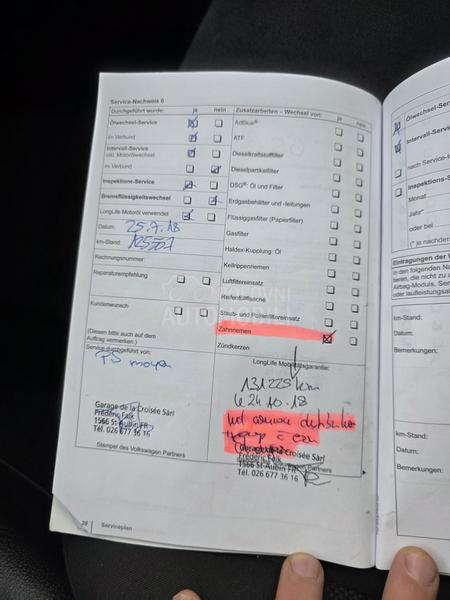 Service-Nachweis 6
Durchgeführt wurde: ja nein
Ölwechsel-Service
im Verbund
Intervall-Service
inkl. Motorölwechsel
im Verbund
Inspektions-Service
Bremsflüssigkeitswechsel
LongLife Motoröl verwendet
Datum: 25.7.18
km-Stand: 125557
Rechnungsnummer:
Reparaturempfehlung
Kundenwunsch
(Diesen bitte auch auf dem
Auftrag vermerken.)
Service durchgeführt von:
Garage de la Croisée Sàrl
Frédéric Falk
1566 St-Aubin FR
Tél. 026 677 36 16
Stempel des Volkswagen Partners
Zusatzarbeiten – Wechsel von: ja nein
AdBlue®
ATF
Dieselkraftstofffilter
Dieselpartikelfilter
DSG®: Öl und Filter
Erdgasbehälter und -leitungen
Flüssiggasfilter (Papierfilter)
Gasfilter
Haldex-Kupplung: Öl
Keilrippenriemen
Luftfiltereinsatz
Reifenfüllflasche
Staub- und Pollenfiltereinsatz
Zahnriemen
Zündkerzen
LongLife Mobilitätsgarantie:
131225 km
24.10.18
Garage de la Croisée Sàrl
Frédéric Falk
1566 St-Aubin FR
Tél. 026 677 36 16
Partners
28 Serviceplan
POLOVNI
AUTOMOBILI
Ölwechsel-Serv
Intervall-Servic
nach Service-
Inspektions-S
Monat
Jahr*
oder bei
(* je nachdem
Eintragungen der W
In den folgenden Na
tieren, die nicht zu d
Airbag-Moduls, Ser
oder laufleistungsab
km-Stand:
Datum:
Bemerkungen:
km-Stand:
Datum:
Bemerkungen: